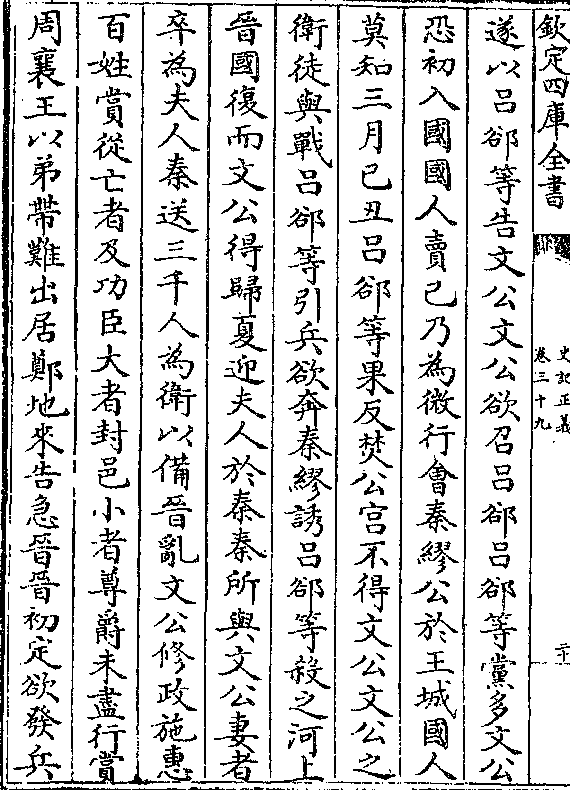 欽定四庫全書
史記正義
卷三十九
遂以呂郤等告文公文公欲召呂郤呂郤等黨多文公
恐初入國國人賣已乃為微行會秦繆公於王城國人
莫知三月已丑呂郤等果反焚公宮不得文公文公之
衛徒與戰呂郤等引兵欲奔秦繆誘呂郤等殺之河上
晉國復而文公得歸夏迎夫人於秦秦所與文公妻者
卒為夫人秦送三千人為衛以備晉亂文公修政施惠
百姓賞從亡者及功臣大者封邑小者尊爵未盡行賞
周襄王以弟帶難出居鄭地來告急晉晉初定欲發兵